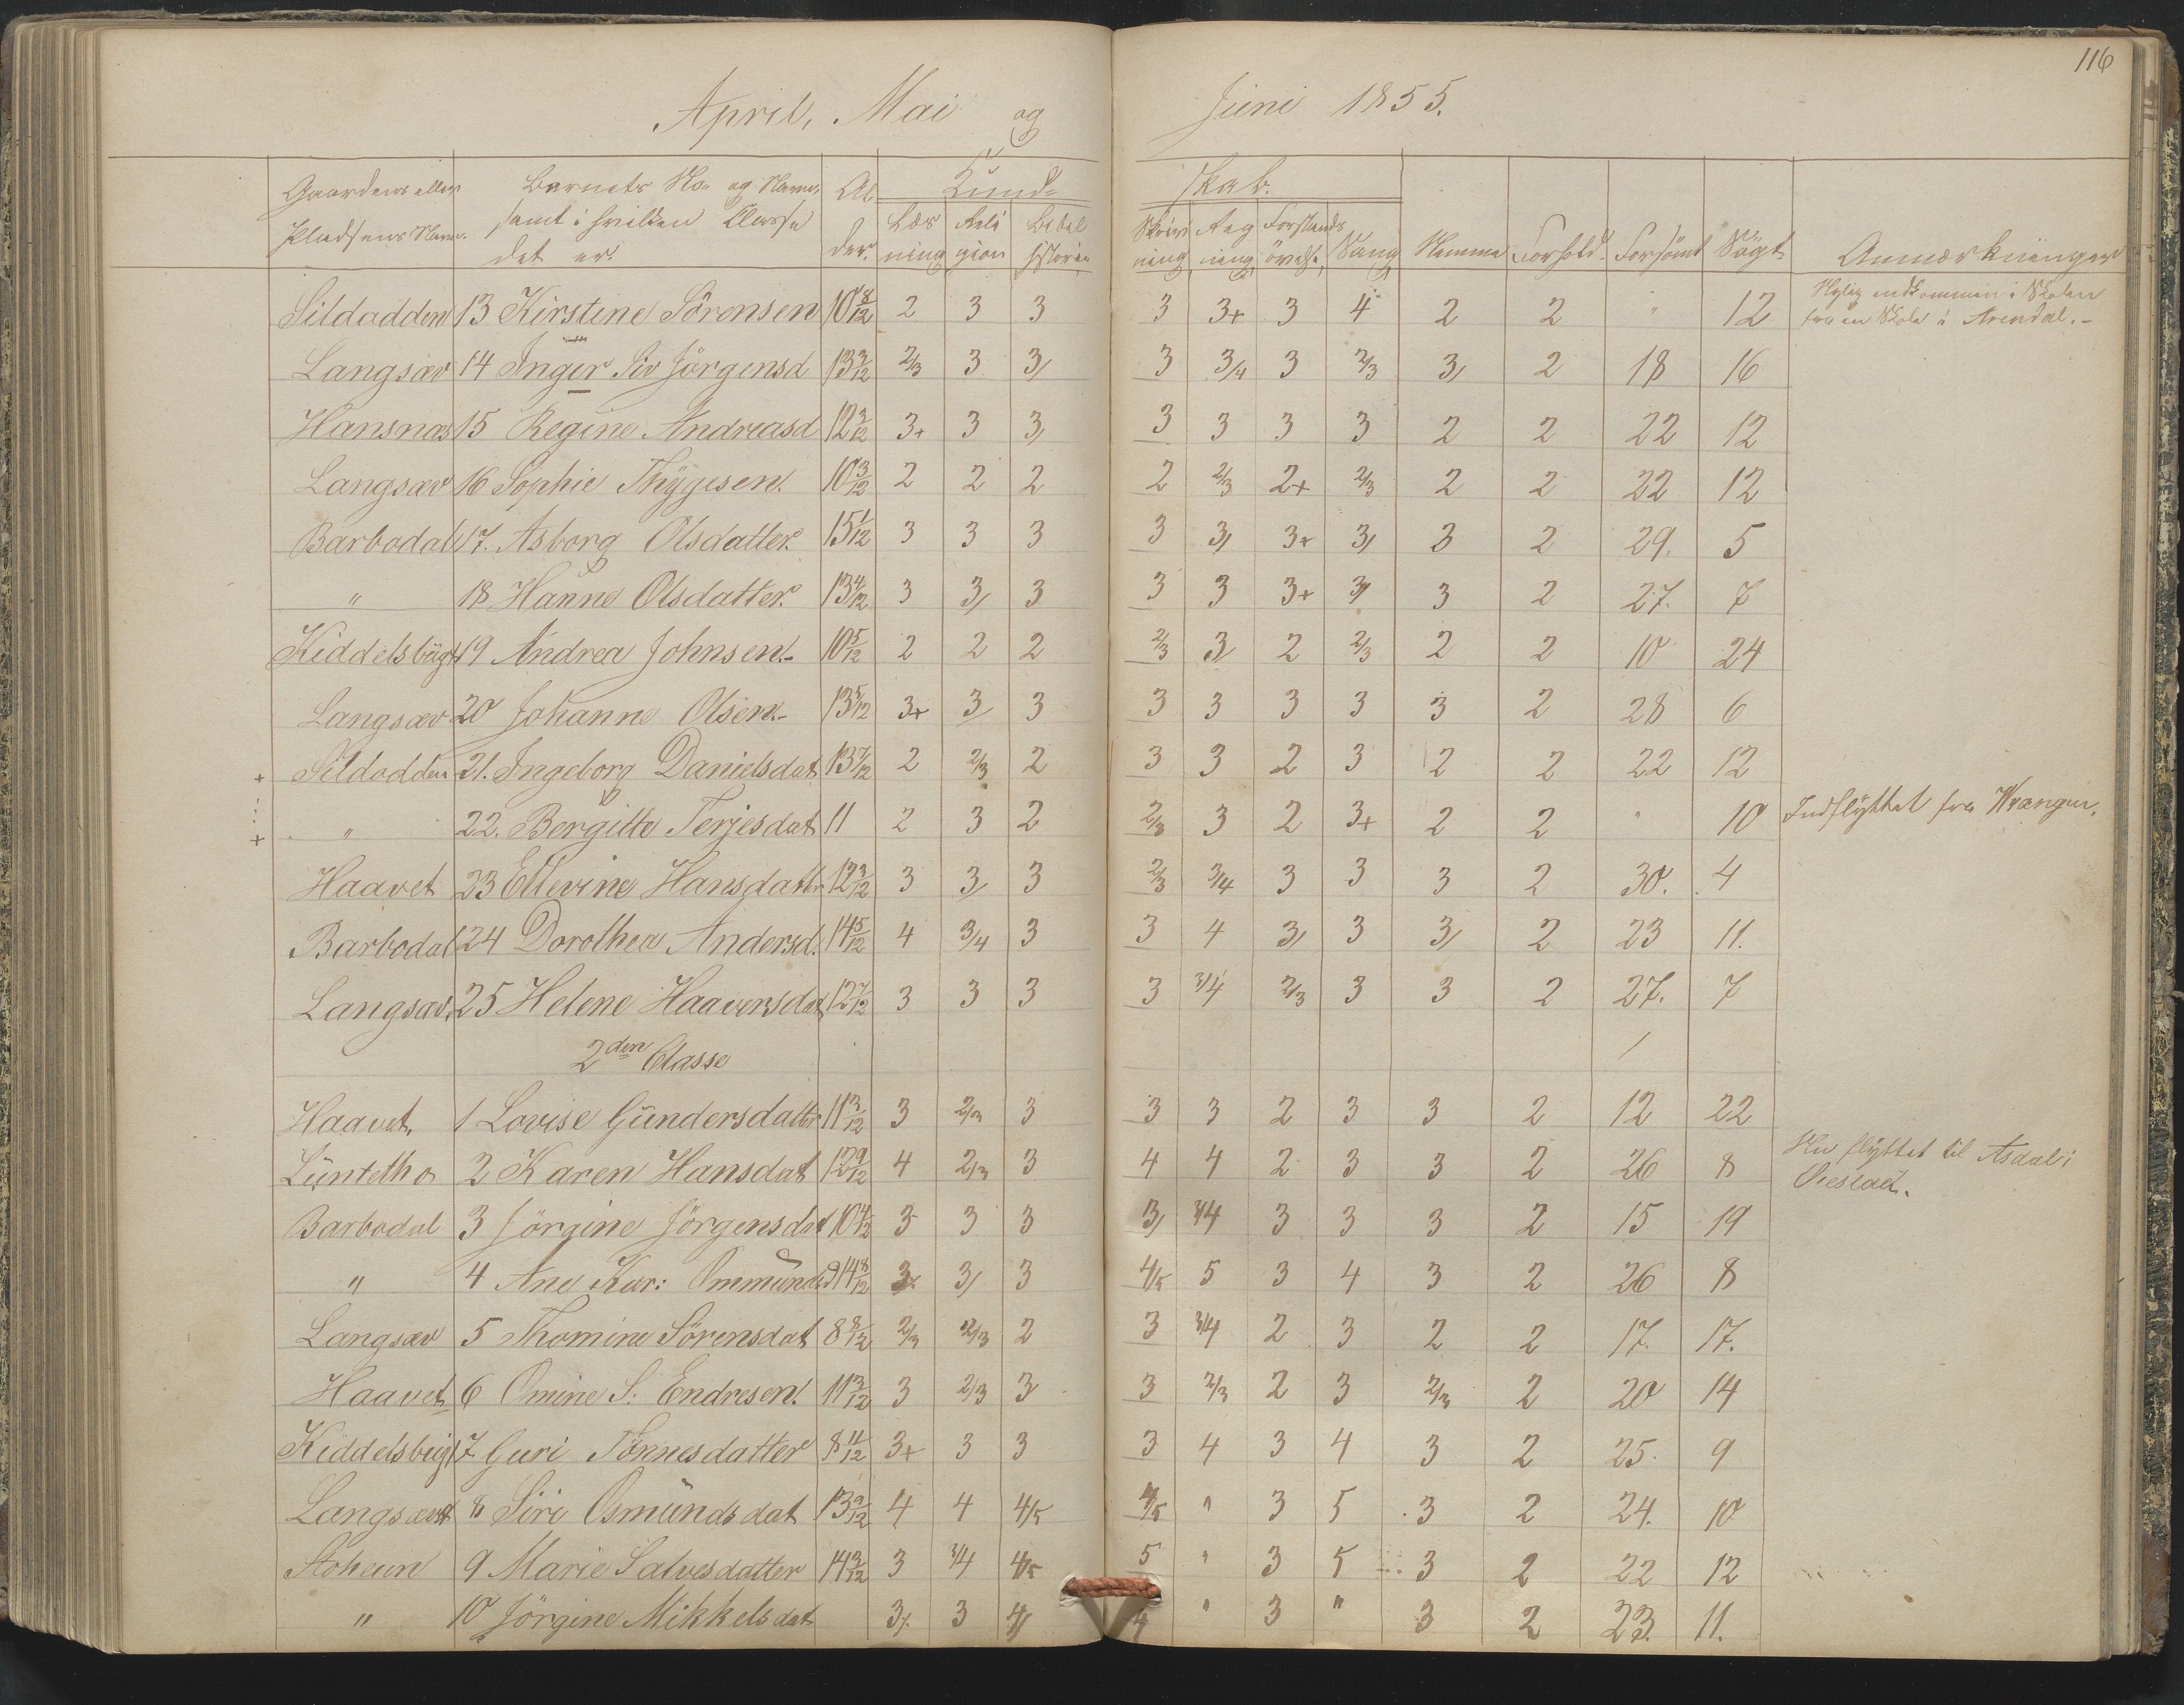 116
April, Mai og Juni 1855.
Gaardens eller Pladsens Navn. Barnets No. og Navn, samt i hvilken Classe det er. Al der. Kund= skab.
Læs ning Reli gion Bibel historie Skriv ning Reg ning Forstands övelse Sang Nemme Forhold. Forsömt Sögt Anmærkninger
Sildodden 13 Kirstine Sörensen 10 8/12 2 3 3 3 3+ 3 4 2 2 " 12 Nylig indkommen i Skolen
fra en Skole i Arendal.-
Langsæv 14 Inger Siv Jörgensd 13 3/12 2/3 3 3/ 3 3/4 3 2/3 3/ 2 18 16
Hansnæs 15 Regine Andreasd 12 3/12 3+ 3 3/ 3 3 3 3 2 2 22 12
Langsæv 16 Sophie Thygesen. 10 3/12 2 2 2 2 2/3 2+ 2/3 2 2 22 12
Barbodal 17. Asborg Olsdatter. 15 1/12 3 3 3 3 3/ 3+ 3/ 3 2 29. 5
" 18 Hanne Olsdatter. 13 4/12 3 3/ 3 3 3 3+ 3/ 3 2 27. 7
Kiddelsbügt 19 Andrea Johnsen.- 10 5/12 2 2 2 2/3 3/ 2 2/3 2 2 10 24
Langsæv 20 Johanne Olsen.- 13 5/12 3+ 3/ 3 3 3 3 3 3 2 28 6
+ Sildodden 21. Ingeborg Danielsdat 13 7/12 2 2/3 2 3 3 2 3 2 2 22 12
+ " 22. Bergitte Terjesdat 11 2 3 2 2/3 3 2 3+ 2 2 " 10 Indflyttet fra Wrangen.
Haavet 23 Ellevine Hansdatter 12 3/12 3 3/ 3 2/3 3/4 3 3 3 2 30. 4
Barbodal 24 Dorothea Andersd. 14 5/12 4 3/4 3 3 4 3/ 3 3/ 2 23 11.
Langsæv. 25 Helene Haaversdat 12 7/12 3 3 3 3 3/4 2/3 3 3 2 27. 7
2den Classe
Haavet. 1 Lovise Gündersdatter 11 3/12 3 2/3 3 3 3 2 3 3 2 12 22
2 Karen Hansdat 12 9/12 4 2/3 3 4 4 2 3 3 2 26 8 Nu flyttet til Asdal i
Öiestad.
Barbodal 3 Jörgine Jörgensdat 10 4/12 3 3 3 3/ 3/4 3 3 3 2 15 19
" 4 Ane Kar: Ommündsd 14 8/12 3/ 3/ 3 4/5 5 3 4 3 2 26 8
Langsæv 5 Thomine Sörensdat 8 8/12 2/3 2/3 2 3 3/4 2 3 2 2 17. 17.
Haavet 6 Omine S: Endresen. 11 3/12 3 2/3 3 3 2/3 2 3 2/3 2 20 14
Kiddelsbugt 7 Guri Tönnesdatter 8 11/12 3+ 3 3 3 4 3 4 3 2 25. 9
8 Siri Osmündsdat 13 9/12 4 4 4/5 4/5 " 3 5 3 2 24. 10
9 Marie Salvesdatter 14 3/12 3 3/4 4/5 5 " 3 5 3 2 22 12
" 10 Jörgine Mikkelsdat 3/. 3 4/ 4 " 3 " 3 2 23. 11.